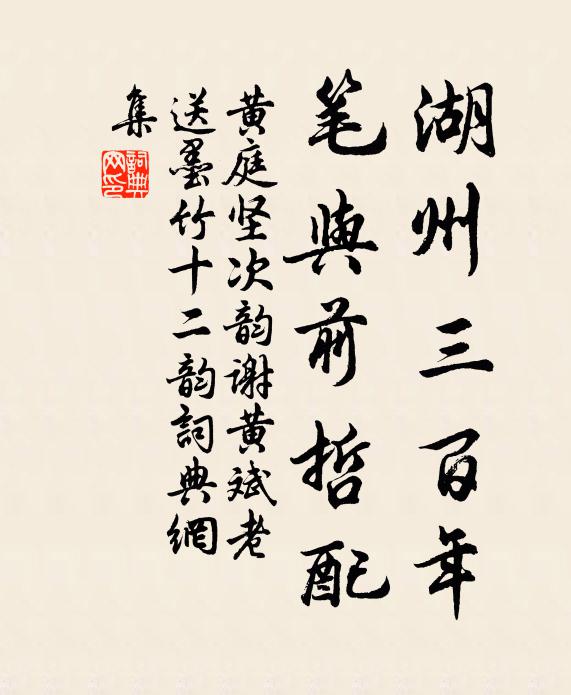 湖州三百年
笔与前哲配
黄庭坚次韵谢黄斌老
送墨竹十二韵詞典網
集
詞典网印